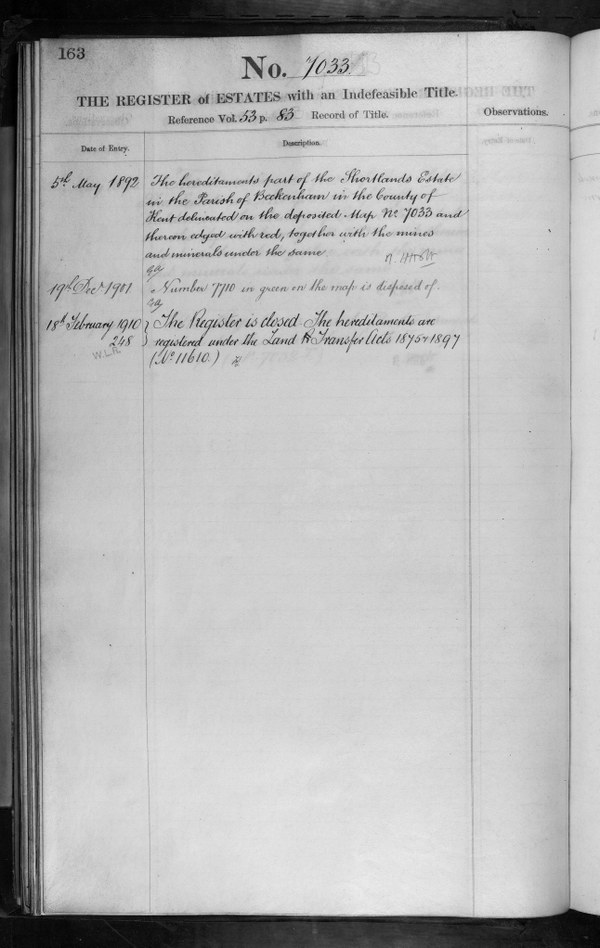 163
No. 7033
THE REGISTER of ESTATES with an Indefeasible Title.
Reference Vol. 53 p. 83 Record of Title.
Observations.
Date of Entry.
Description.
5th May 1892
The hereditaments part of the Shortlands Estate
in the Parish of Beckenham in the County of
Kent delineated on the deposited Map No 7033 and
thereon edged with red, together with the mines
and minerals under the same
19th Decr 1901
Number 7710 in green on the map is disposed of.
18th February 1910
248
W.L.R.
The Register is closed The hereditaments are
registered under the Land Transfer Acts 1875 & 1897
(No 11610.)